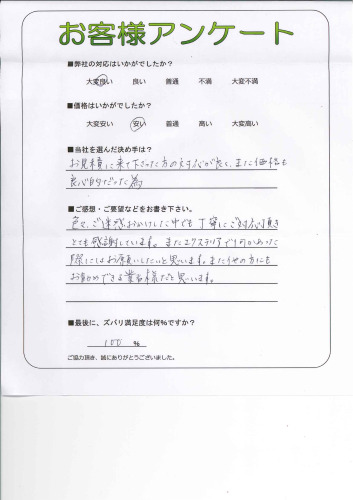 お客様アンケート
■弊社の対応はいかがでしたか?
大変良い 良い 普通 不満 大変不満
■価格はいかがでしたか?
大変安い 安い 普通 高い 大変高い
■当社を選んだ決め手は?
お見積に来て下さった方の対応が良く、また価格も
良心的だった為
■ご感想・ご要望などをお書き下さい。
色々、ご迷惑おかけした中でも丁寧にご対応頂き
とても感謝しています。またエクステリアで何かあった
際にはお願いしたいと思います。また他の方にも
お勧めできる業者様だと思います。
■最後に、ズバリ満足度は何%ですか?
100 %
ご協力頂き、誠にありがとうございました。